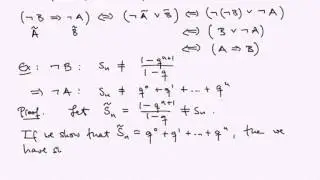 (¬B ⇒ ¬A) ⇔ (¬Ã ∨ B̃) ⇔ (¬(¬B) ∨ ¬A)
Ã B̃ ⇔ (B ∨ ¬A)
⇔ (A ⇒ B)
Ex: ¬B: Sₙ ≠ (1-qⁿ⁺¹)/(1-q)
⇒ ¬A: Sₙ ≠ q⁰ + q¹ + ... + qⁿ
Proof. Let S̃ₙ = (1-qⁿ⁺¹)/(1-q) ≠ Sₙ.
If we show that S̃ₙ = q⁰ + q¹ + ... + qⁿ, the we
have s